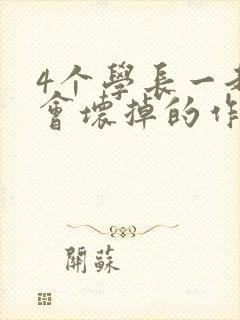 4个學長一
會壞掉的作
關蘇